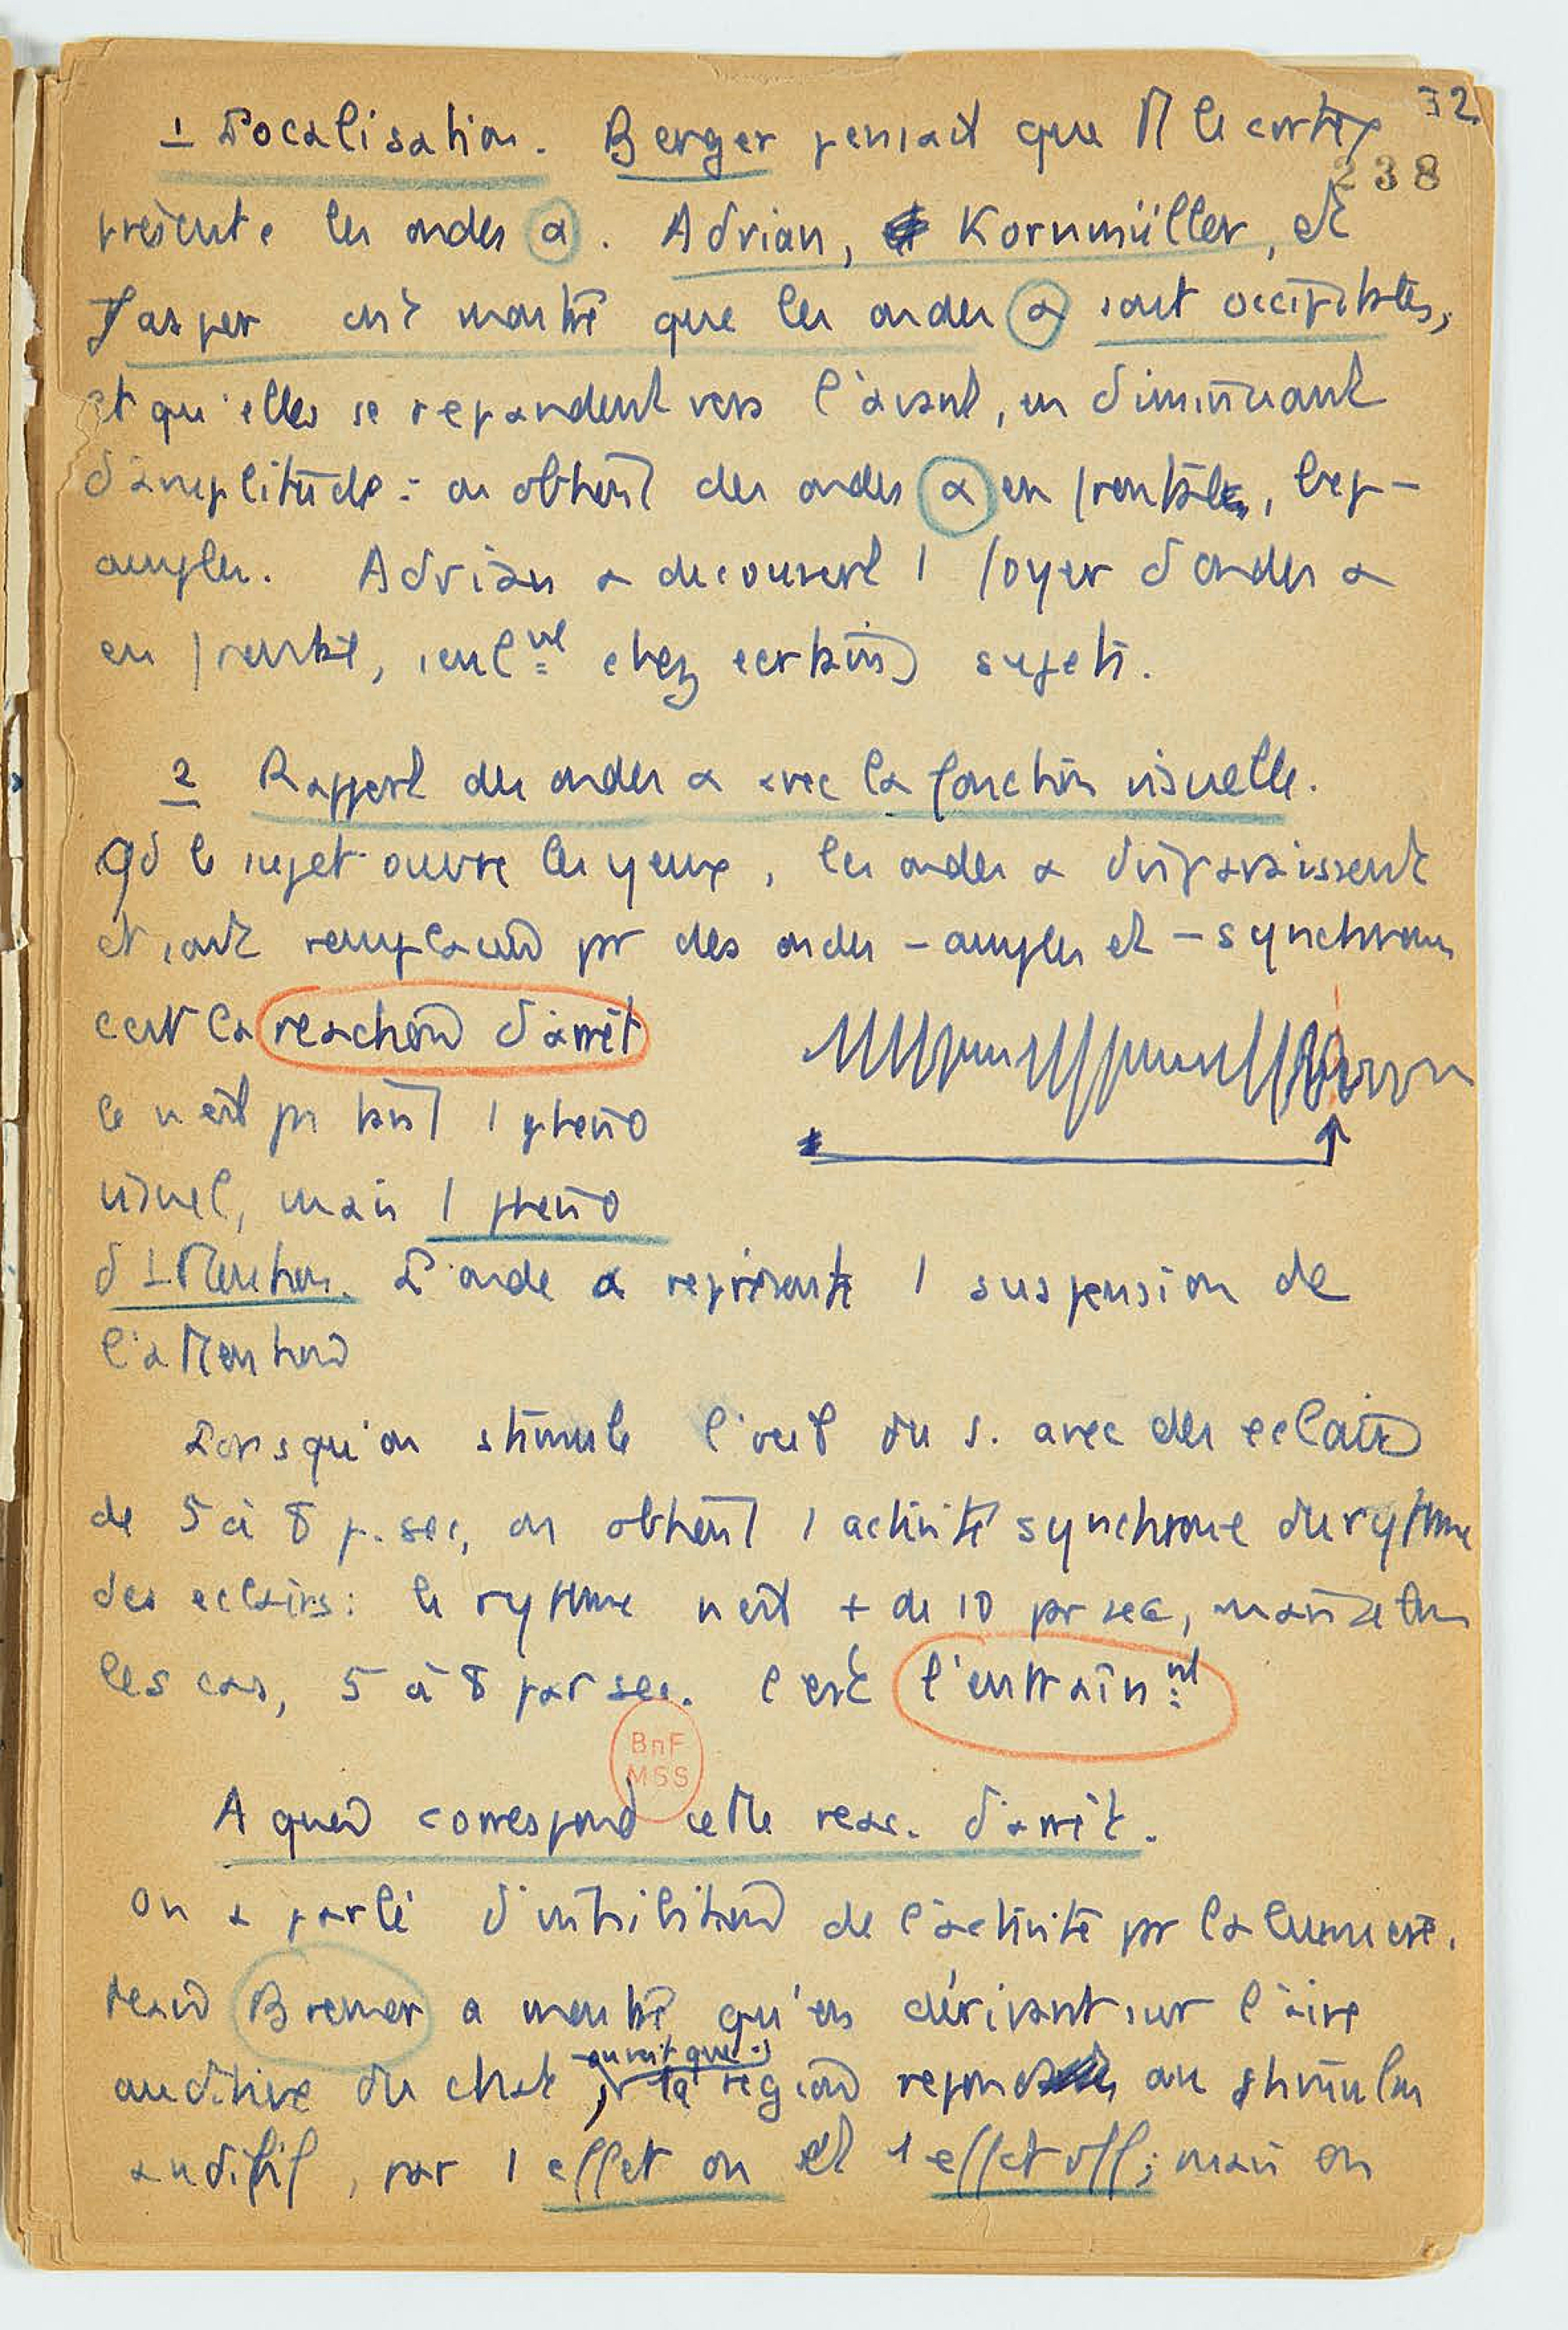 32
238
1 Localisation. Berger pensait que tt le cortex
présente les ondes α. Adrian, Kornmüller, et
Jasper ont montré que les ondes α sont occipitales,
et qu'elles se repandent vers l'avant, en diminuant
d'amplitude : on obtient des ondes α en frontale, bcp -
amples. Adrian a decouvert 1 foyer d'ondes α
en frontal, seulnt chez certains sujets.
2 Rapport des ondes α avec la fonction visuelle.
Qd le sujet ouvre les yeux, les ondes α disparaissent
et sont remplacées pr des ondes - amples et - synchrones
c'est la reaction d'arrêt
Ce n'est ps tant 1 pheno
visuel, mais 1 pheno
d'attention. L'onde α représente 1 suspension de
l'attention
Lorsqu'on stimule l'oeil du s. avec des eclairs
de 5 à 8 p. sec, on obtient 1 activité synchrone du rythme
des eclairs : le rythme n'est + de 10 par sec, mais
les cas, 5 à 8 par sec. C'est l'entraînnt
BnF
MSS
A quoi correspond cette reac. d'arrêt.
On a parlé d'inhibition de l'activité pr la lumiere.
Bremer a montré qu'en dérivant sur l'aire
auditive du chat, on voit que
la région repond au stimulus
auditif, par 1 effet on et 1 effet off ; mais on